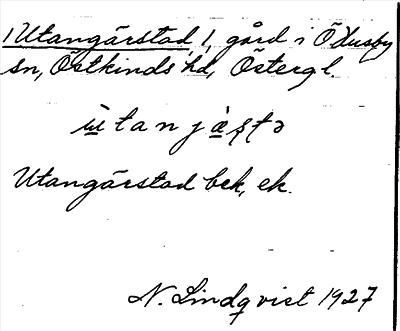 1 Utangärstad 1, gård i Ö Husby
sn, Östkinds hd, Östergl.
ùtanjæ̀ṣṭə
Utangärstad bek, ek.
N. Lindqvist 1927